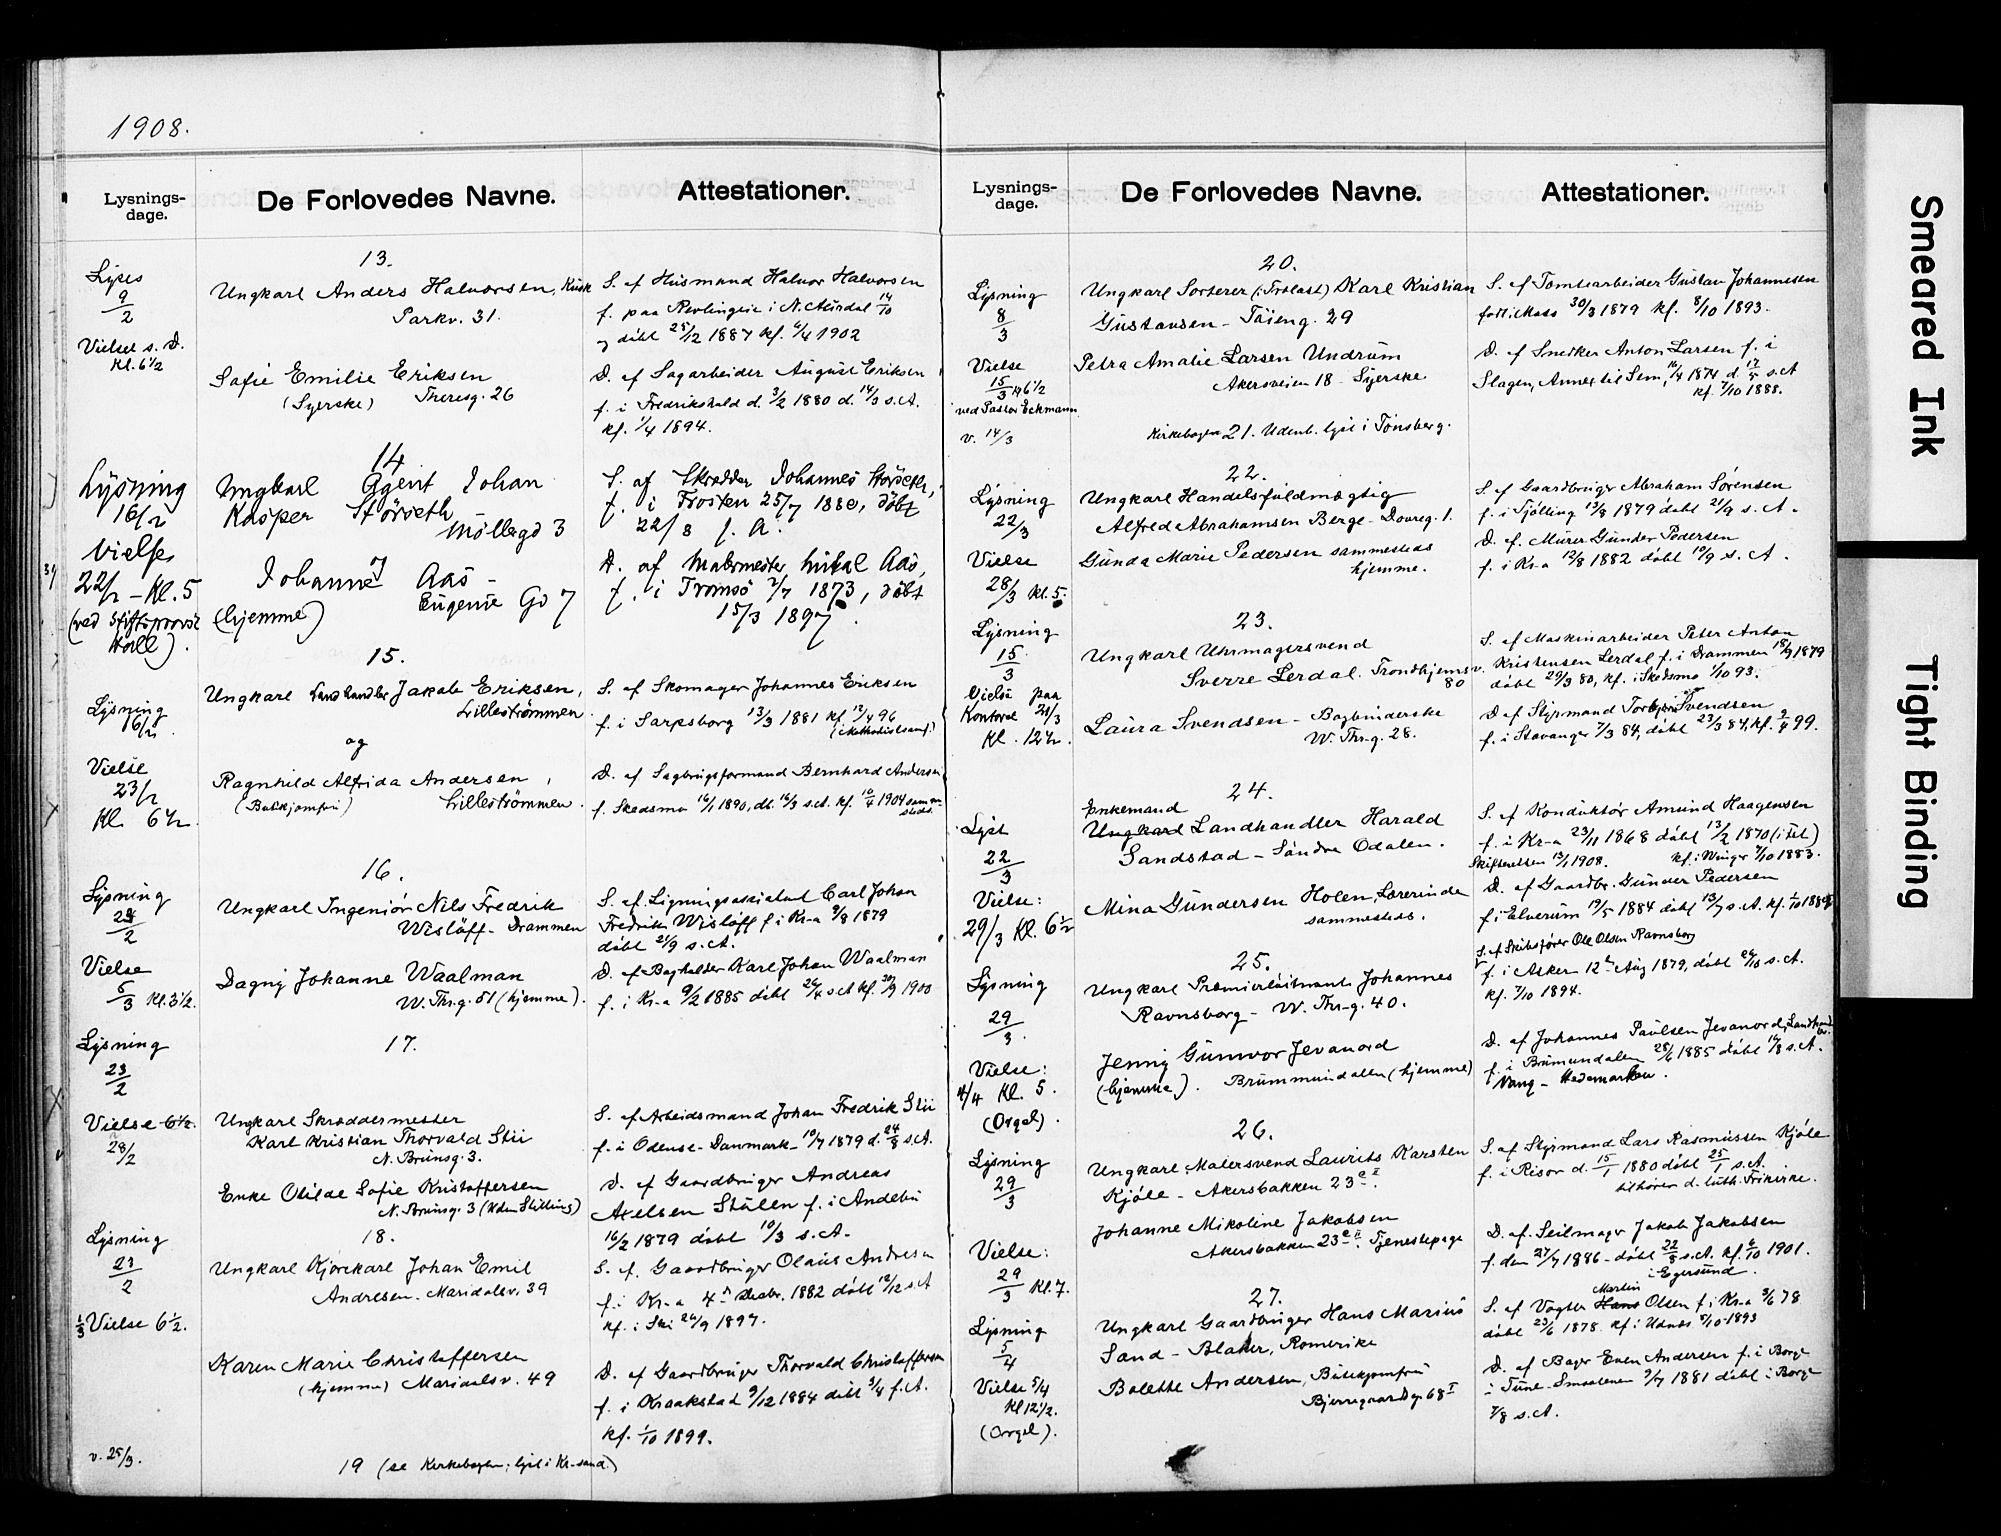 1908.
Lysnings-
dage.
De Forlovedes Navne.
Attestationer.
13.
Lyses
9/2
Vielse s. D.
Kl. 6 1/2
Ungkarl Anders Halvorsen, Kusk
Parkv. 31.
S. af Husmand Halvor Halvorsen
f. paa i N. Aurdal 14/10
og døbt 25/12 1887 kf. 6/4 1902
Sofie Emilie Eriksen
(Syerske) Theresg. 26
D. af Sagarbeider August Eriksen
f. i Fredrikshald d. 3/2 1880 d. 14/3 s. A.
kf. 1/4 1894.
14
Lysning
16/2
Vielse
22/2 - Kl. 5
(ved Stiftsprovst
Hall).
Ungkarl Johan
Kasper Störseth
Möllergd 3
S. af Skrædder Johannes Störseth,
f. i Frosten 25/7 1880, døbt
22/8 s. A.
Johanne Aas -
(hjemme) Eugenie Gd 7
D. af Malermester Mikal Aas,
f. i Tromsö 2/7 1873, døbt
15/3 1897.
15.
Lysning
16/2.
Vielse
23/2
Kl. 6 1/2.
Ungkarl Landhandler Jakob Eriksen,
Lilleströmmen
og
Ragnhild Alfrida Andersen,
(Butikjomfru) Lilleströmmen.
S. af Skomager Johannes Eriksen
f. i Sarpsborg 13/3 1881 kf. 12/4 96
(Methodistsamf.)
D. af Sagbrugsformand Bernhard Andersen
f. Skedsmo 16/1 1890, dbt. 16/3 s. A. kf. 10/4 1904 sammesteds.
16.
Lysning
24/2
Vielse
5/3 Kl. 3 1/2.
Ungkarl Ingeniør Nils Fredrik
Wisløff - Drammen
Dagny Johanne Waalman
W. Thr.g. 51 (hjemme).
S. af Ligningsassistent Carl Johan
Fredrik Wisløff f. i Kr-a 9/8 1879
døbt 21/9 s. A.
D. af Bogholder Karl Johan Waalman
f. i Kr-a 9/2 1885 døbt 26/4 s. A. kf. 30/9 1900
17.
Lysning
23/2
Vielse 6 1/2.
28/2
Ungkarl Skræddermester
Karl Kristian Thorvald Stii
N. Brunsg. 3.
Enke Otilde Sofie Kristoffersen
N. Brunsg. 3 (Uden Stilling)
S. af Arbeidsmand Johan Fredrik Stii
f. i Odense - Danmark - 10/7 1879 d. 24/8 s. A.
D. af Gaardbruger Andreas
Axelsen Stulen f. i Andebu
16/2 1879 døbt 10/3 s. A.
18.
Lysning
23/2
1/3 Vielse 6 1/2.
Ungkarl Kjørekarl Johan Emil
Andresen - Maridalsv. 39
Karen Marie Christoffersen
(hjemme) Maridalsv. 49
S. af Gaardbruger Olaus Andresen
f. i Kr-a 4 Decbr. 1882 døbt 12/12 s. A
kf. i Ski 26/9 1897.
D. af Gaardbruger Thorvald Christoffersen
f. i Kraakstad 9/12 1884 døbt 3/4 f. A.
kf. 1/10 1899.
v. 25/3.
19 (se Kirkebogen; lyst i Kr-sand.)
Lysnings-
dage.
De Forlovedes Navne.
Attestationer.
20.
Lysning
8/3
Vielse
15/3 kl 6 1/2
ved Pastor Eckmann
v. 14/3
Ungkarl Sorterer (Trælast) Karl Kristian
Gustavsen - Tøieng. 29
S. af Tomtearbeider Gustav Johannesen
født i Moss 30/3 1879 kf. 8/10 1893.
Petra Amalie Larsen Undrum
Akersveien 18 - Syerske
D. af Snedker Anton Larsen f. i
Slagen, Annex til Sem, 16/4 1874 d. 17/5 s. A
kf. 7/10 1888.
Kirkebogen 21. Udenb. lyst i Tønsberg.
22.
Lysning
22/3
Vielse
28/3 Kl. 5.
Ungkarl Handelsfuldmægtig
Alfred Abrahamsen Berge - Dovreg. 1.
Gunda Marie Pedersen sammesteds
hjemme.
S. af Gaardbruger Abraham Sørensen
f. i Tjølling 13/8 1879 døbt 21/9 s. A.
D. af Murer Gunder Pedersen
f. i Kr-a 12/8 1882 døbt 10/9 s. A.
23.
Lysning
15/3
Vielse paa
Kontoret 21/3
Kl. 12 1/2.
Ungkarl Uhrmagersvend
Sverre Lerdal. Trondhjemsv.
80
Laura Svendsen - Bogbinderske
W. Thr.g. 28.
S. af Maskinarbeider Peter Anton
Kristensen Lerdal f. i Drammen 18/9 1879
døbt 29/3 80, kf. i Skedsmo 1/10 93.
D. af Styrmand Torbjørn Svendsen
f. i Stavanger 7/3 84, døbt 23/3 84, kf. 9/4 99.
24.
Lyst
22/3
Vielse:
29/3 Kl. 6 1/2
Enkemand
Ungkarl Landhandler Harald
Sandstad - Söndre Odalen.
Mina Gundersen Holen, Lærerinde
sammesteds.
S. af Konduktør Amund Haagensen
f. i Kr-a 23/11 1868 døbt 13/2 1870 (i Fet)
Skifteretten 13/1 1908. kf. i Winger 7/10 1883.
D. af Gaardbr. Gunder Pedersen
f. i Elverum 19/5 1884 døbt 13/7 s. A. kf. 1/10 1898
25.
Lysning
29/3.
Vielse:
4/4 Kl. 5.
(Orgel).
Ungkarl Premierløitnant Johannes
Ravnsborg - W. Thr-g. 40.
Jenny Gunvor Jevanord
(hjemme). Brummundalen (hjemme)
S. af Skibsfører Ole Olsen Ravnsborg
f. i Asker 12te Aug 1879, døbt 26/10 s. A.
kf. 7/10 1894.
D. af Johannes Paulsen Jevanord, Landhandler
f. i Brumundalen 28/6 1885 døbt 16/8 s. A.
Vang - Hedemarken.
26.
Lysning
29/3
Vielse:
29/3 Kl. 7.
Ungkarl Malersvend Laurits Karsten
Kjøle - Akersbakken 23 c II.
Johanne Mikoline Jakobsen
Akersbakken 23 c II. Tjenestepige
S. af Styrmand Lars Rasmussen Kjøle
f. i Risør d. 15/1 1880 døbt 25/1 s. A.
tilhører d. luth. Frikirke.
D. af Seilmager Jakob Jakobsen
f. den 27/7 1886 - døbt 22/8 s. A. kf. 6/10 1901.
i Egersund.
27.
Lysning
5/4
Vielse 5/4
Kl 12 1/2.
(Orgel).
Ungkarl Gaardbruger Hans Marius
Sand - Blaker, Romerike
Bolette Andersen, Butikjomfru
Bjerregaardsg. 68 I
Martin
S. af Vogter Hans Olsen f. i Kr-a 3/6 78
døbt 23/6 1878 kf. i Udnæs 8/10 - 1893
D. af Bager Even Andersen f. i Borge
i Tune - Smaalenene 9/7 1881 døbt i Borge
7/8 s. A.
Smeared Ink
Tight Binding